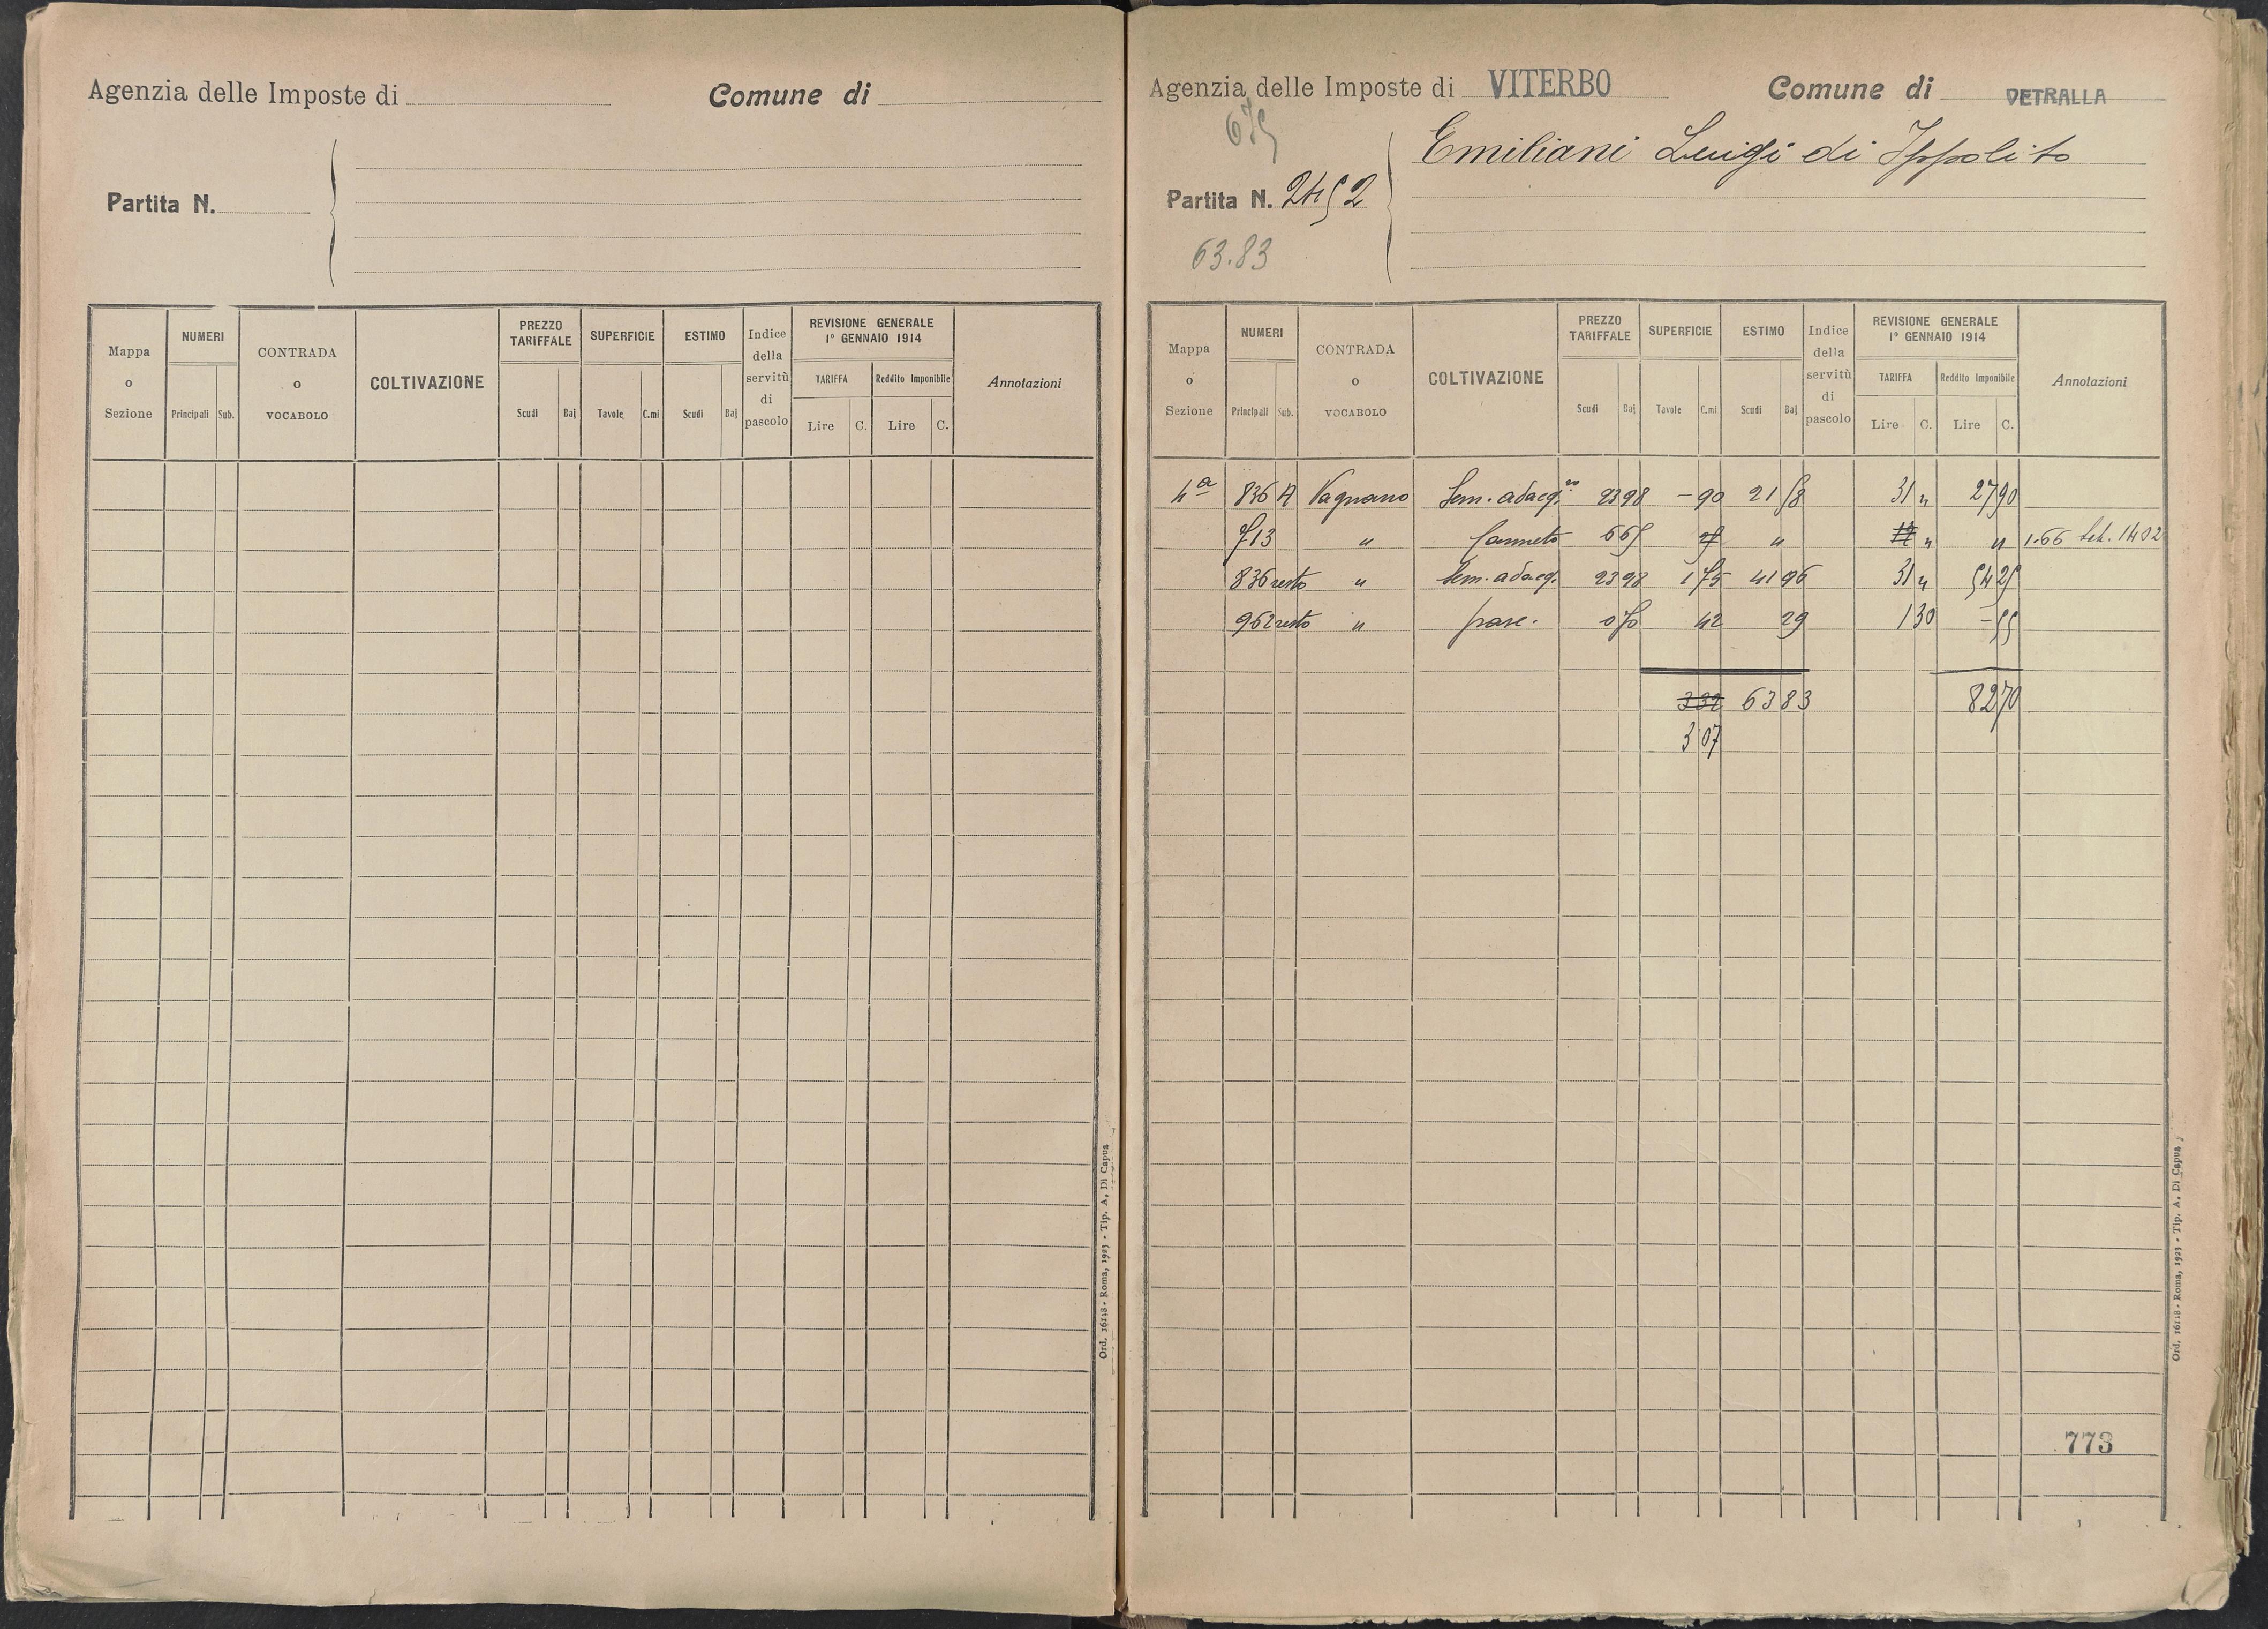 Agenzia delle Imposte di
Comune di
Partita N.
Mappa o Sezione
NUMERI
Principali Sub.
CONTRADA o VOCABOLO
COLTIVAZIONE
PREZZO TARIFFALE
Scudi Baj
SUPERFICIE
Tavole C.mi
ESTIMO
Scudi Baj
Indice della servitù di pascolo
REVISIONE GENERALE
1° GENNAIO 1914
TARIFFA Reddito Imponibile
Lire C. Lire C.
Annotazioni
Ord. 16118 - Roma, 1923 - Tip. A. Di Capua
Agenzia delle Imposte di VITERBO
Comune di VETRALLA
Emiliani Luigi di Ippolito
Partita N. 2452
63.83
Mappa o Sezione
NUMERI
Principali Sub.
CONTRADA o VOCABOLO
COLTIVAZIONE
PREZZO TARIFFALE
Scudi Baj
SUPERFICIE
Tavole C.mi
ESTIMO
Scudi Baj
Indice della servitù di pascolo
REVISIONE GENERALE
1° GENNAIO 1914
TARIFFA Reddito Imponibile
Lire C. Lire C.
Annotazioni
4a 836 A Vagnano Sem. adacq.vo 23 98 - 90 21 58 31 " 27 90
713 " Canneto 6 65 27 " 12 " " 1.66 1402
836 resto " Sem. adacq. 23 98 1 75 41 96 31 " 54 25
962 resto " pasc. 0 70 42 29 1 30 - 55
3 32 63 83 82 70
3 07
773
Ord. 16118 - Roma, 1923 - Tip. A. Di Capua